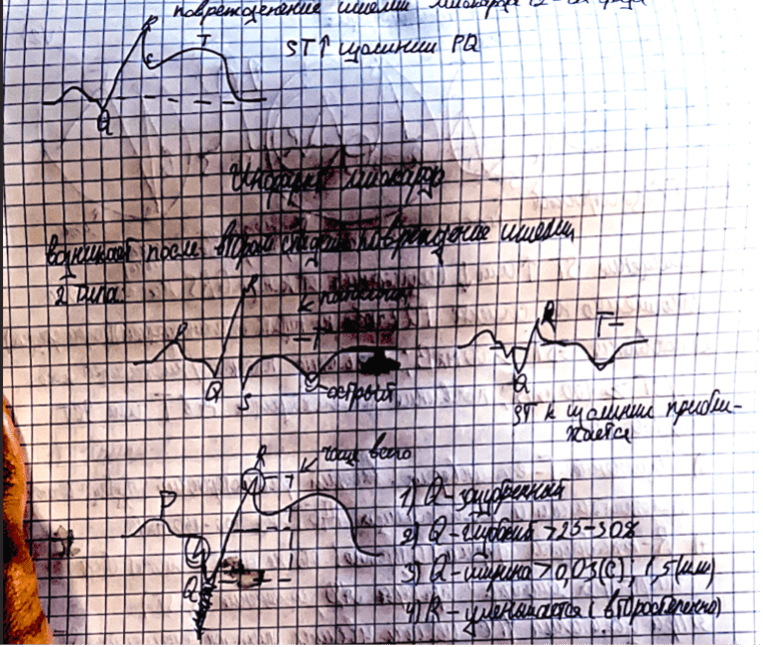 повреждение ишемии миокарда
R
S
T
Q
ST↑ изолинии PQ
Инфаркт миокарда
возникает после второй стадии повреждение ишемии
2 типа:
R
P
Q
S
-T
острый
R
T-
Q
ST к изолинии прибли-
жается
R
чаще всего
P
Q
1) Q-зазубренный
2) Q-глубокий >25-30%
3) Q-ширина >0,03(с); 1,5(мм)
4) R-уменьшается (второстепенно)